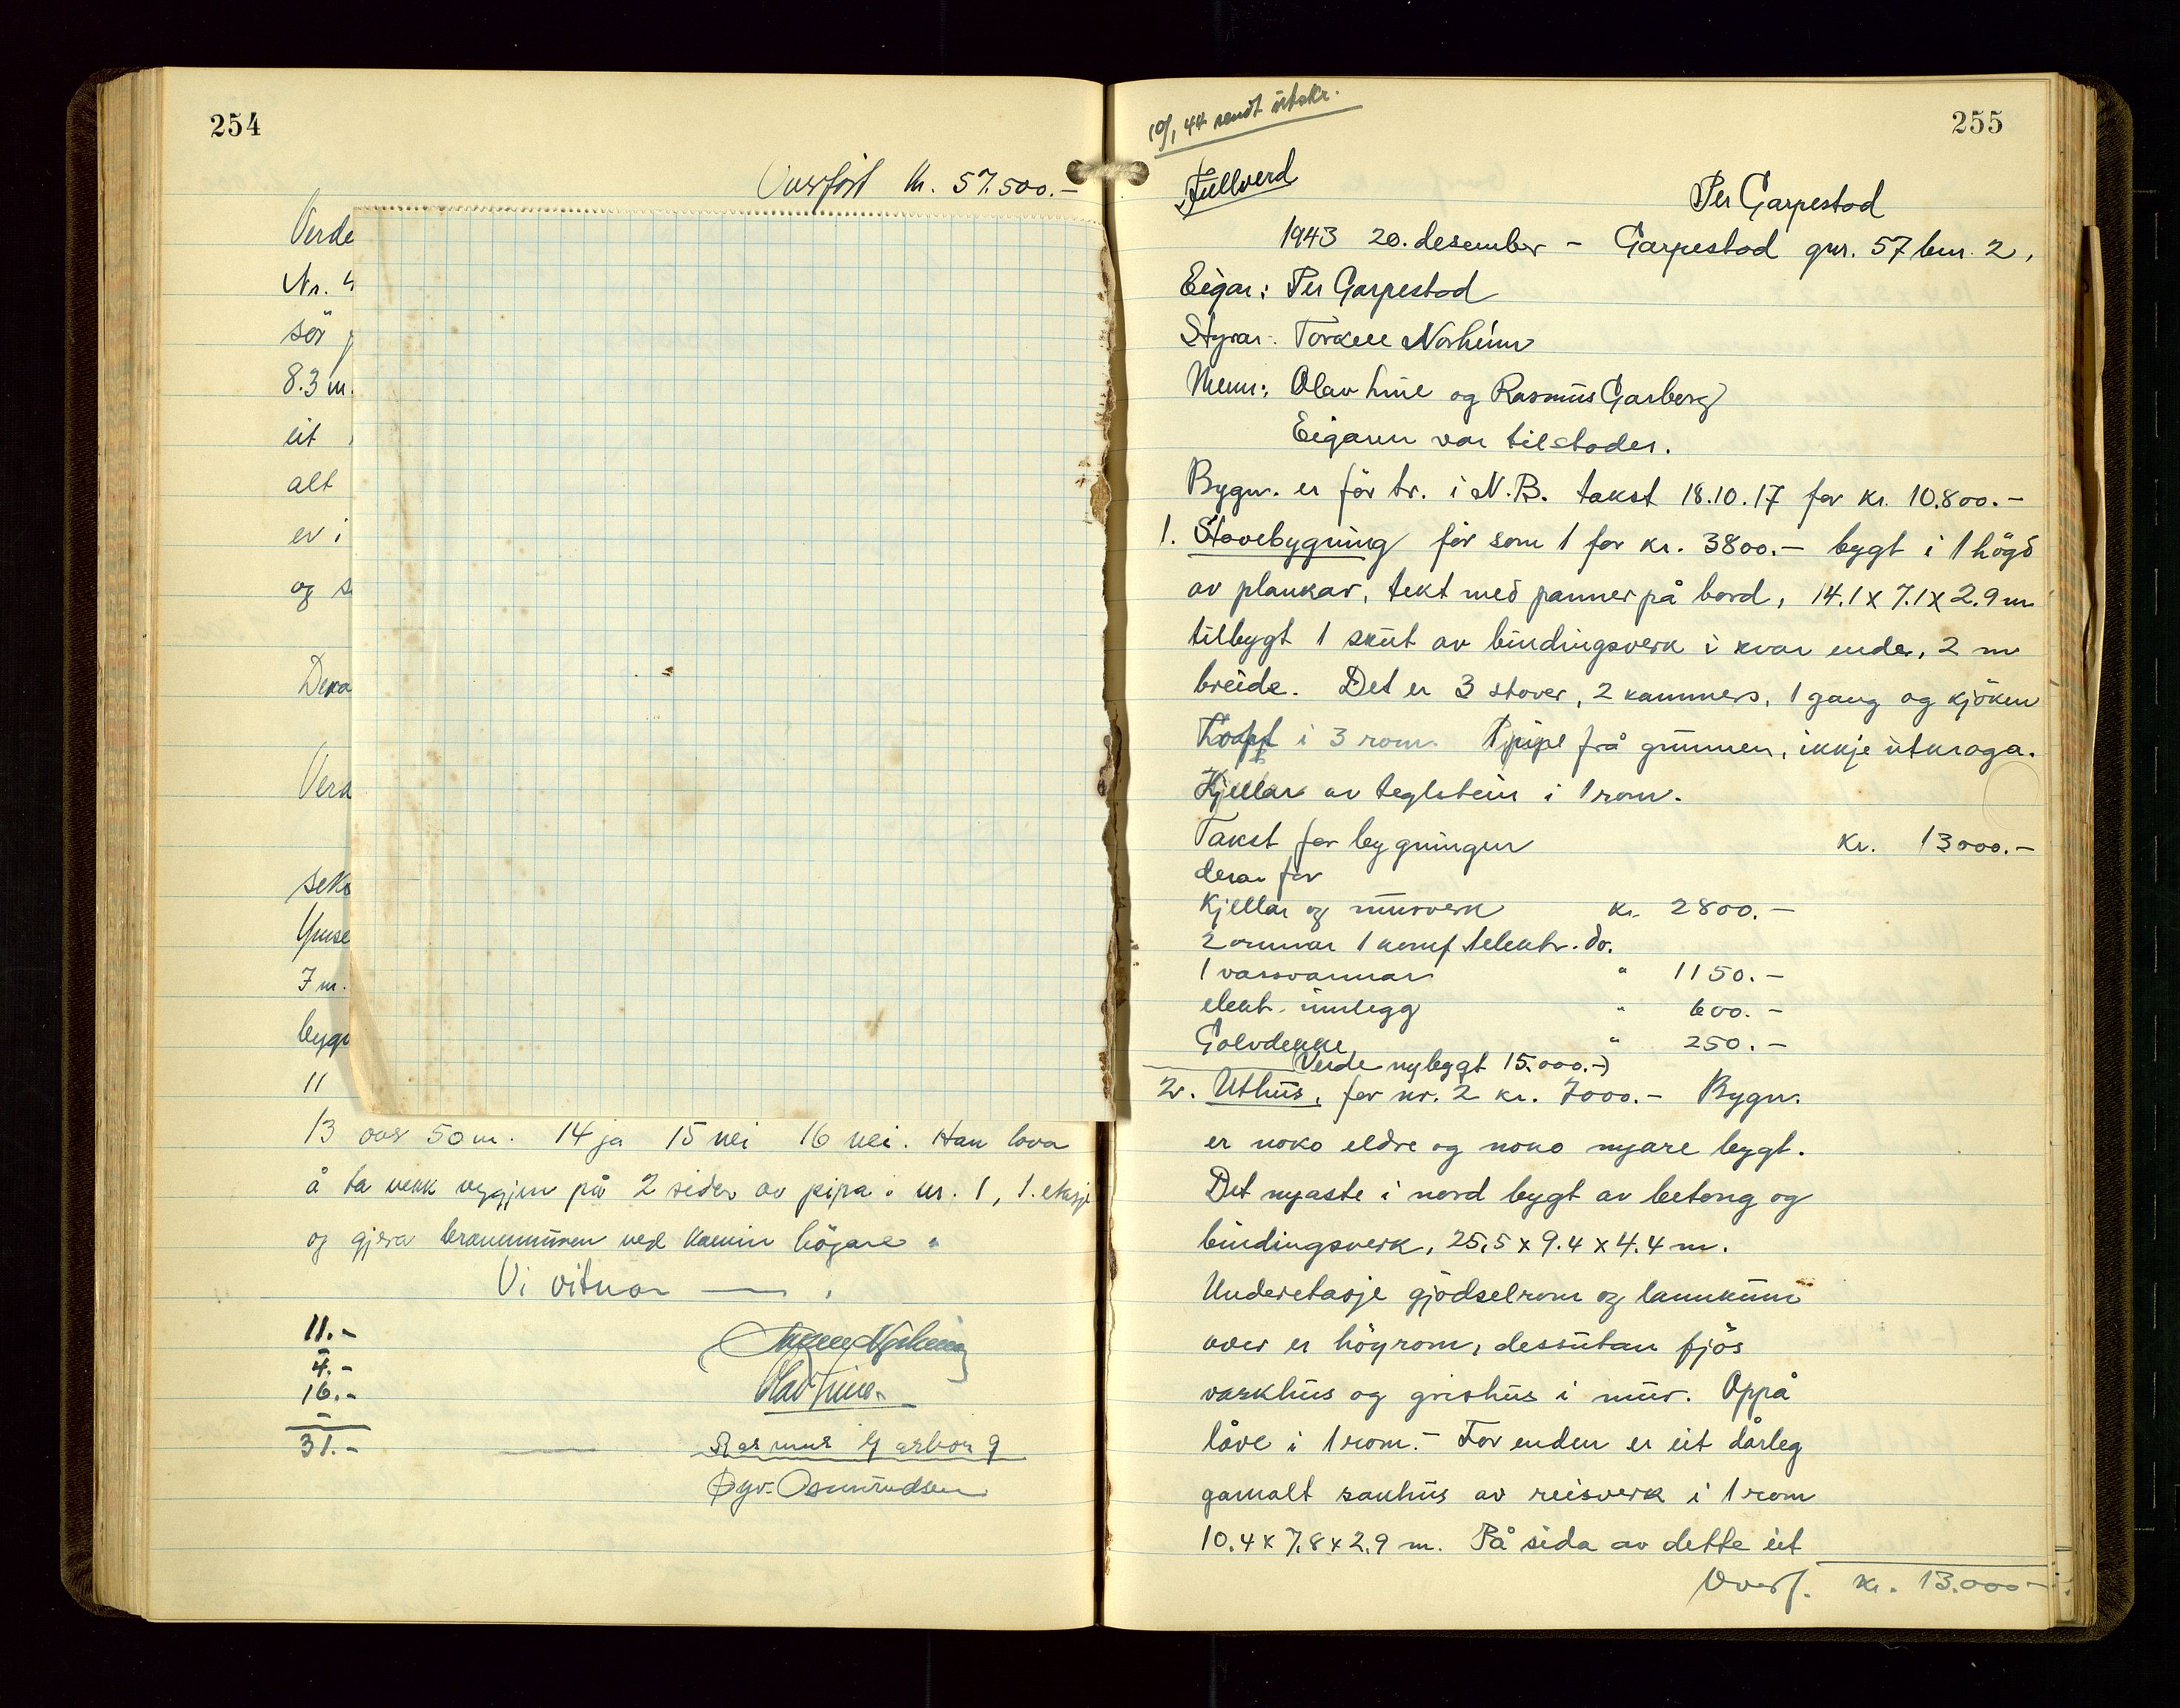 254
Overført kr. 57.500.-
Verde
Nr. 4
sør
8.3 m.
eit
alt
er i
og s
Deka
Vera
seks
Ymse
7 m.
bygn
11
13 over 50 m. 14 ja 15 nei 16 nei. Han lova
å ta vekk veggjen på 2 sider av pipa i nr. 1, 1. etasje
og gjera brannmuren ved kamin högare.
Vi vitnar — .
11.-
4.-
16.-
31.-
Torkell Norheim
Olav Line
Rasmus Garborg
Øyv. Osmundsen
255
10/1 44 sendt utskr.
Fullverd
Per Garpestad
1943 20. desember - Garpestad gnr. 57 bnr. 2,
Eigar: Per Garpestad
Styrar: Torkell Norheim
Menn: Olav Line og Rasmus Garberg
Eigaren var tilstades.
Bygn. er för tr. i N.B. takst 18.10.17 for kr. 10.800.-
1. Stovebygning för som 1 for kr. 3800.- bygt i 1 högd
av plankar, tekt med panner på bord, 14.1 x 7.1 x 2.9 m
tilbygt 1 skut av bindingsverk i kvar ende, 2 m
breide. Det er 3 stover, 2 kammers, 1 gang og kjöken
Loft i 3 rom. 1 pipe frå grunnen, ikkje utkraga.
Kjellar av teglstein i 1 rom.
Takst for bygningen kr. 13000.-
derav for
Kjellar og murverk kr. 2800.-
2 omnar 1 komf. 1 elektr. do.
1 vassvarmar " 1150.-
elekt. innlegg " 600.-
Golvdekke " 250.-
(Verde nybygt 15.000.-)
2. Uthus, for nr. 2 kr. 7000.- Bygn.
er noko eldre og noko nyare bygt.
Det nyaste i nord bygt av betong og
bindingsverk, 25.5 x 9.4 x 4.4 m.
Underetasje gjödselrom og lannkum
over er höyrom, dessutan fjös
vaskhus og grishus i mur. Oppå
låve i 1 rom. - For enden er eit dårleg
gamalt sauhus av reisverk i 1 rom
10.4 x 7.8 x 2.9 m. På sida av dette eit
Overf. kr. 13.000.-